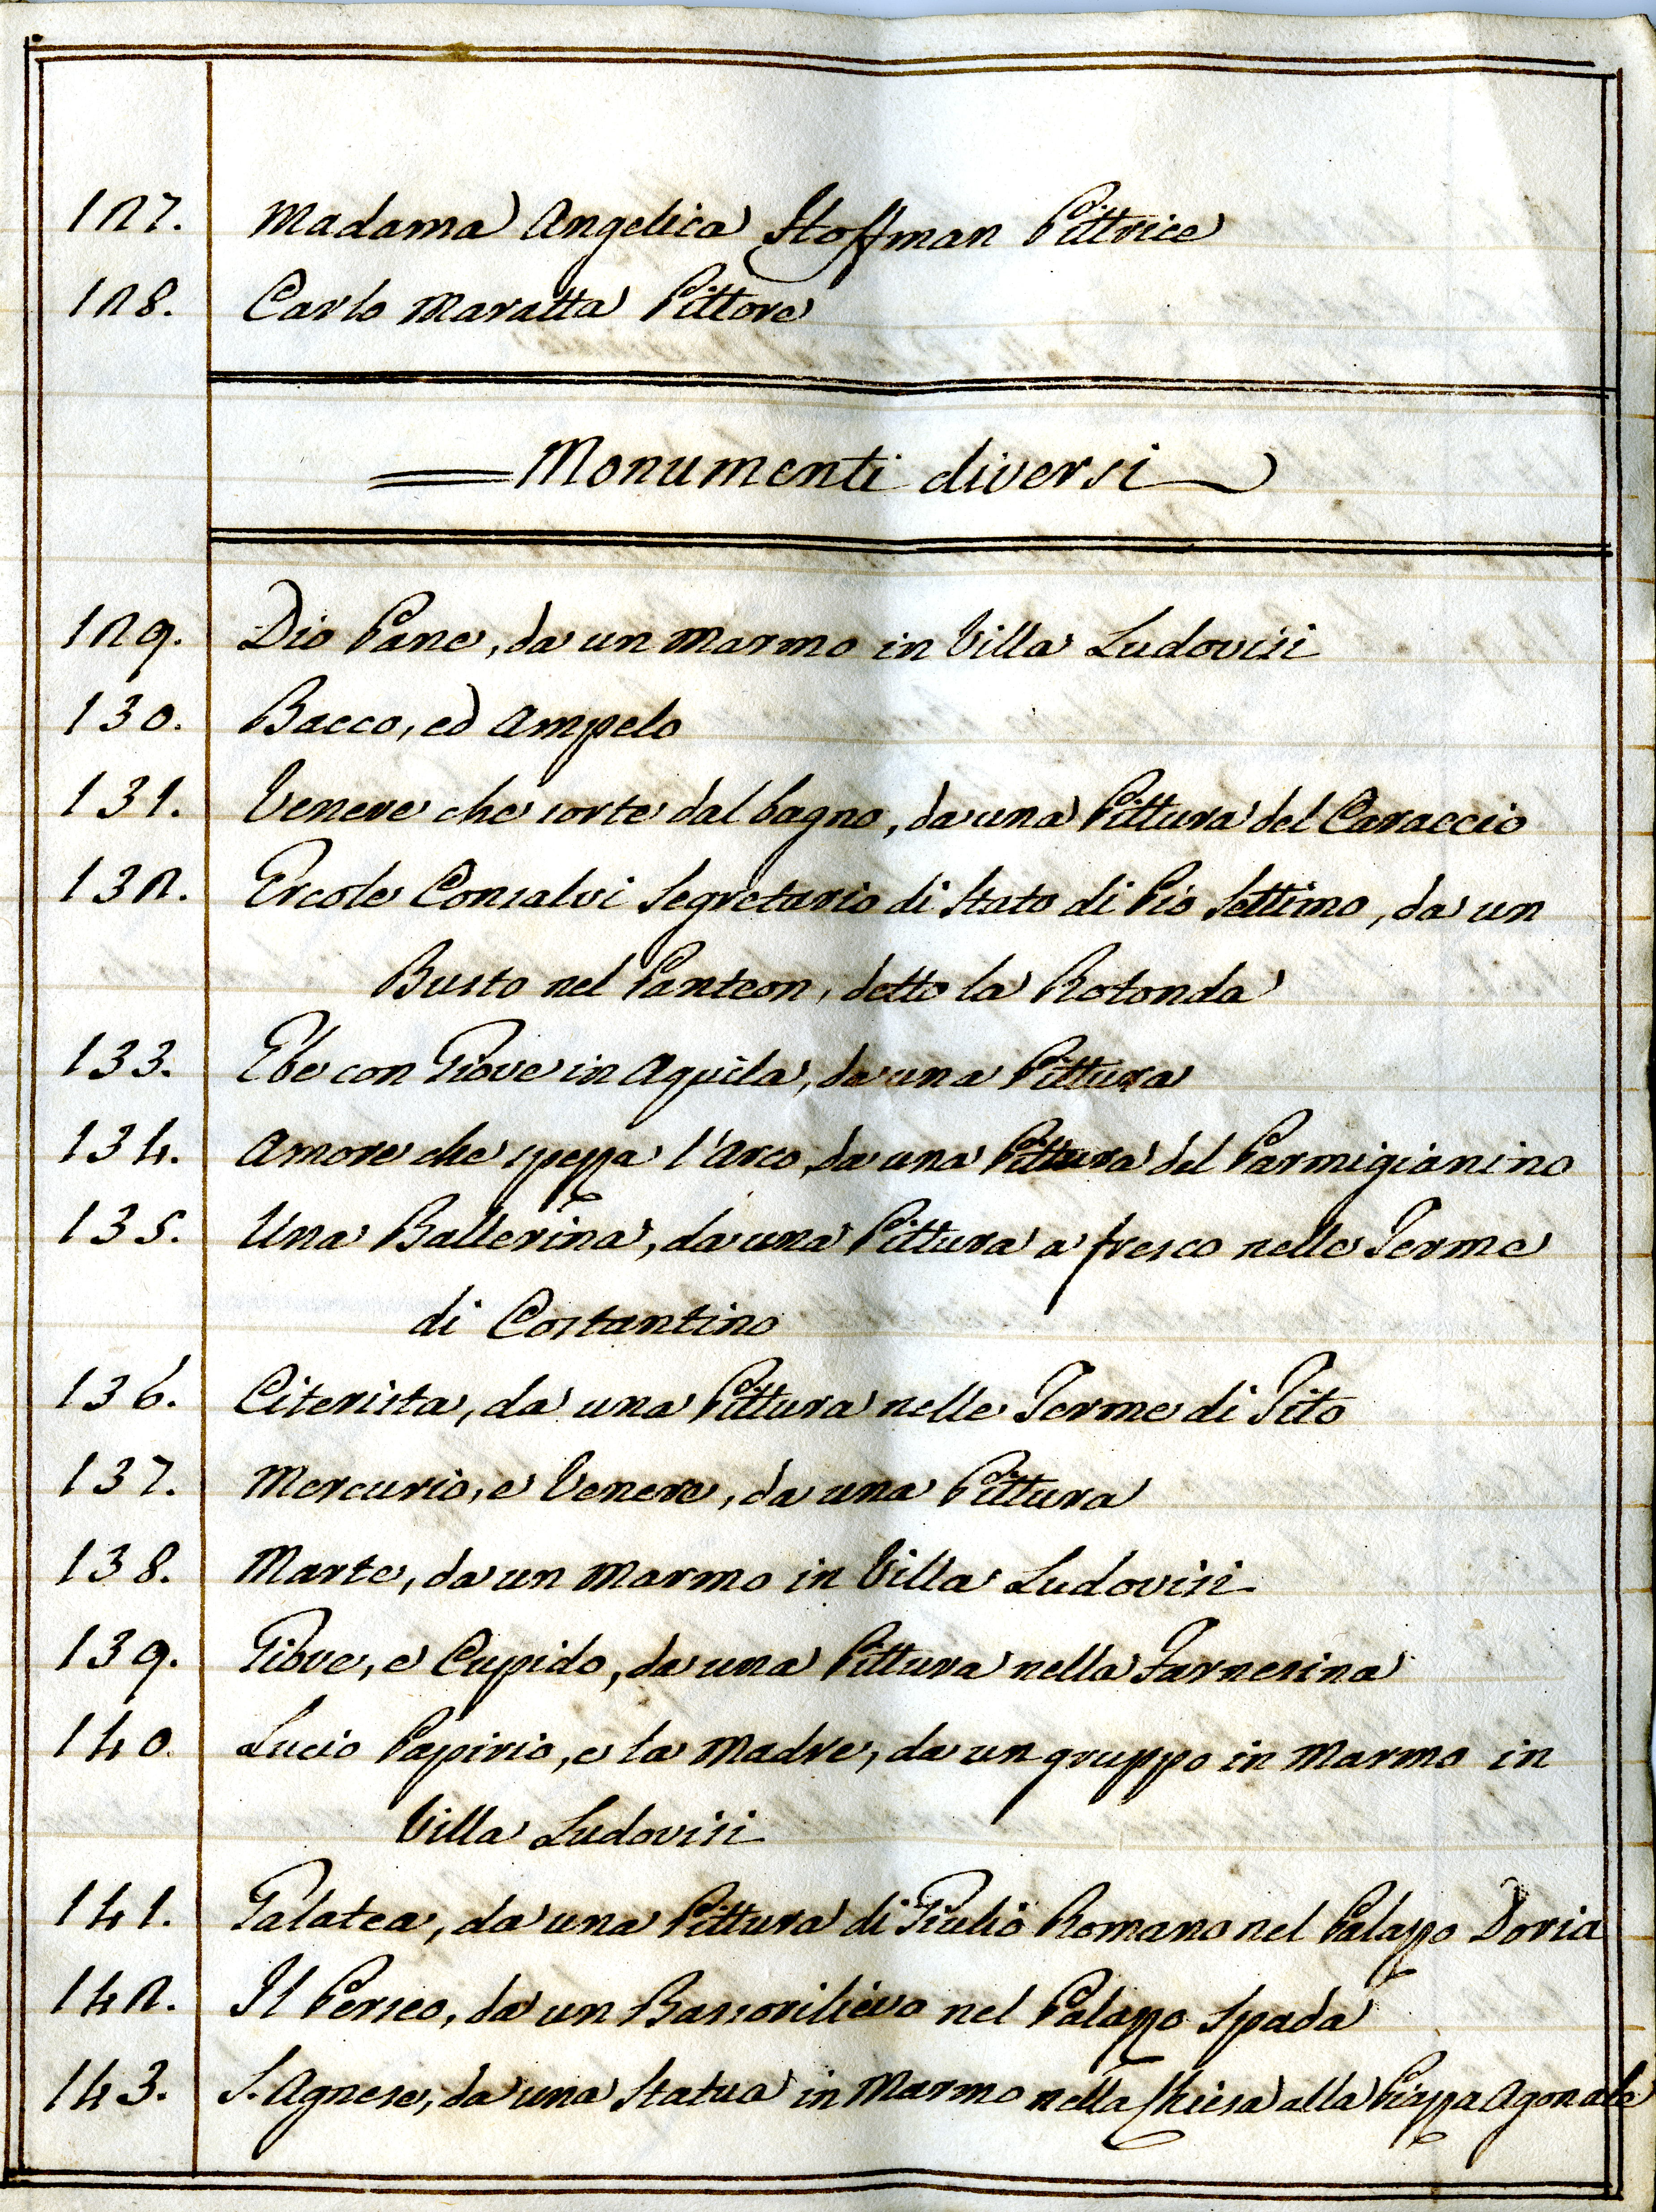 127. Madama Angelica Hoffman Pittrice
128. Carlo Maratta Pittore
Monumenti diversi
129. Dio Pane, da un Marmo in Villa Ludovisi
130. Bacco, ed Ampelo
131. Venere che sorte dal bagno, da una Pittura del Caraccio
132. Ercole Consalvi Segretario di Stato di Pio Settimo, da un
Busto nel Panteon, detto la Rotonda
133. Ebe con Giove in Aquila, da una Pittura
134. Amore che spezza l'Arco, da una Pittura del Parmigianino
135. Una Ballerina, da una Pittura a fresco nelle Terme
di Costantino
136. Citerista, da una Pittura nelle Terme di Tito
137. Mercurio, e Venere, da una Pittura
138. Marte, da un Marmo in Villa Ludovisi
139. Giove, e Cupido, da una Pittura nella Farnesina
140. Lucio Papirio, e la Madre, da un gruppo in Marmo in
Villa Ludovisi
141. Galatea, da una Pittura di Giulio Romano nel Palazzo Doria
142. Il Perseo, da un Bassorilievo nel Palazzo Spada
143. S. Agnese, da una Statua in Marmo nella Chiesa alla Piazza Agonale